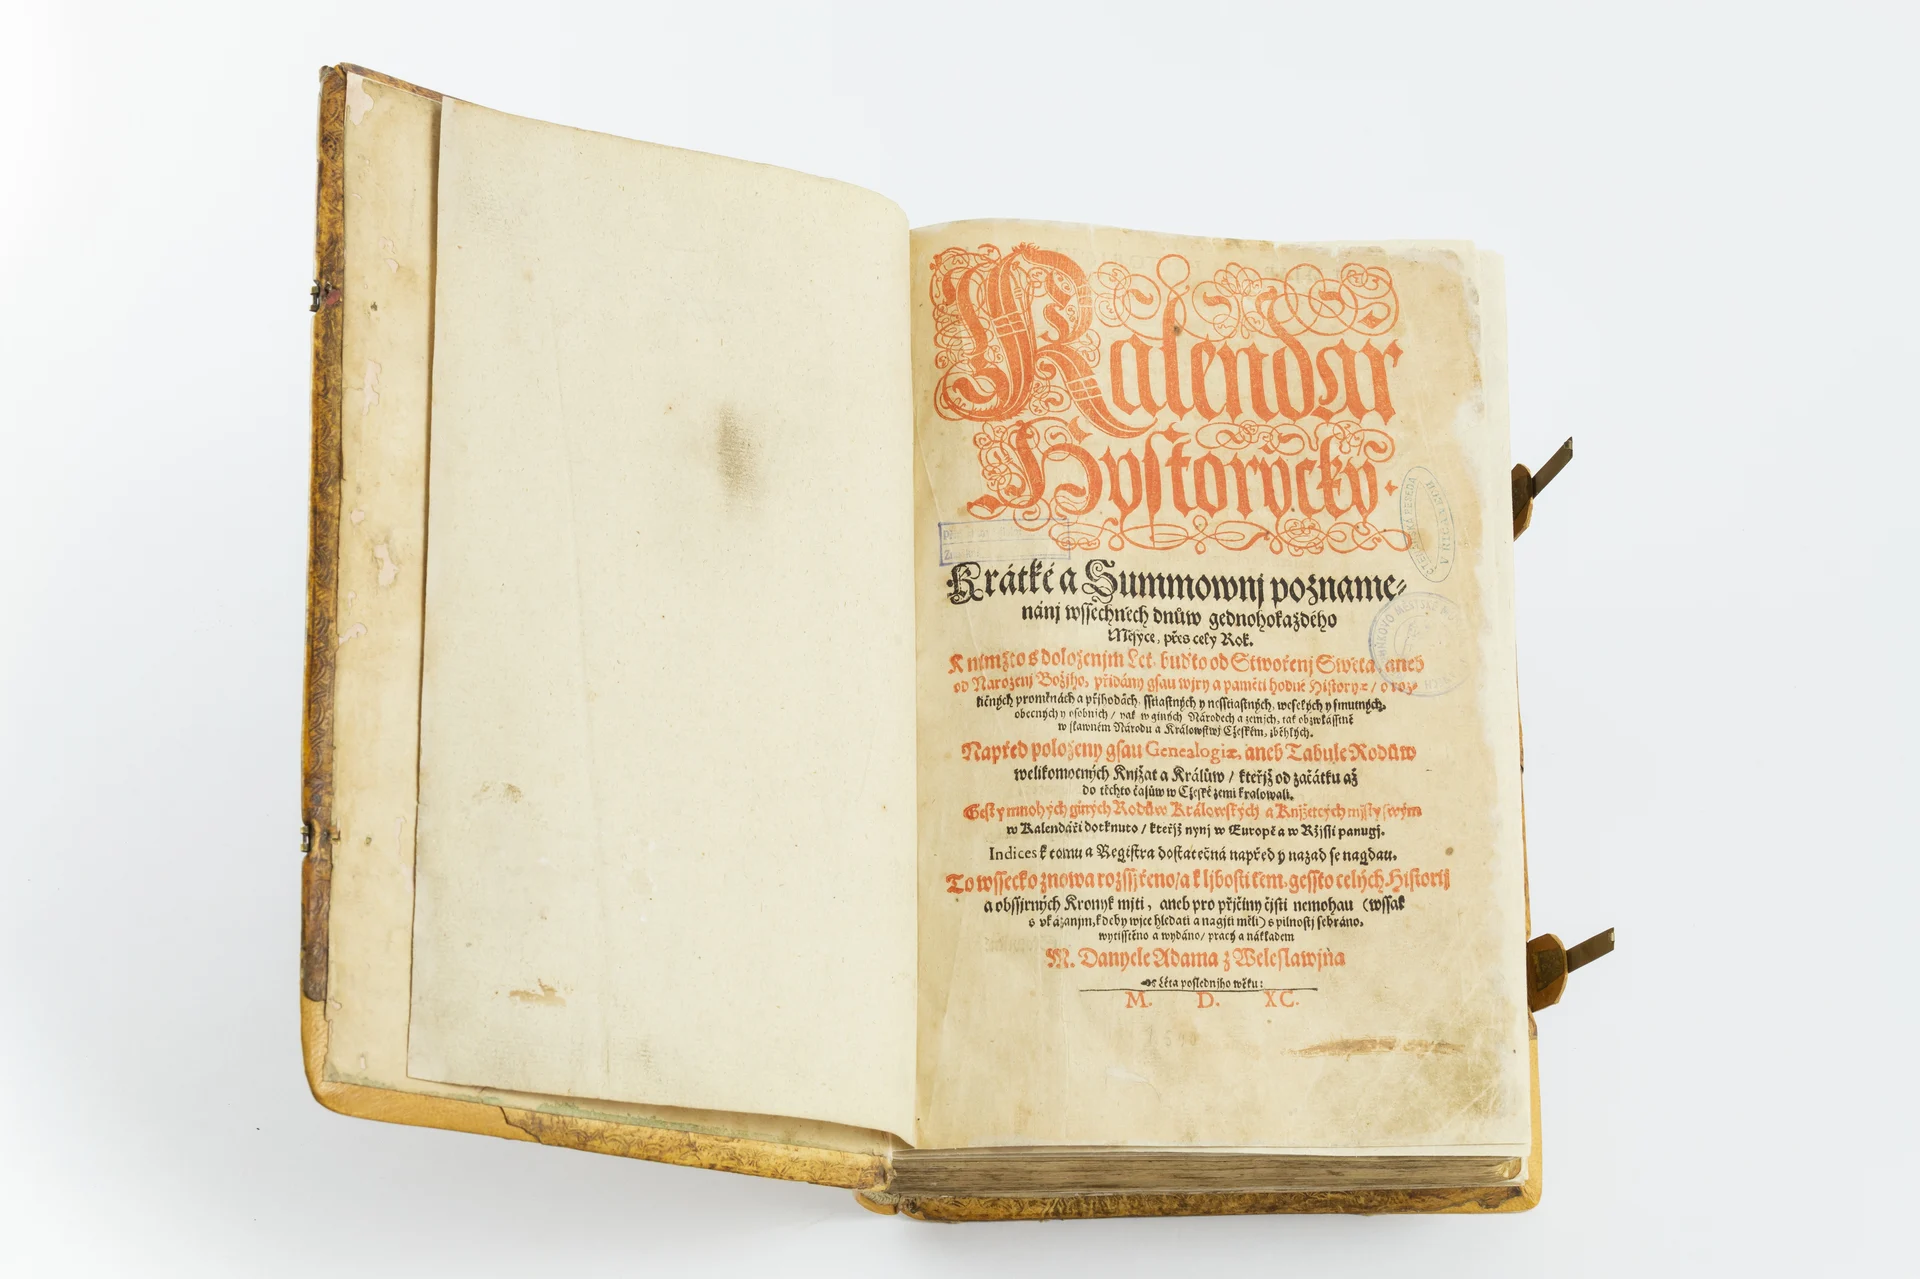 Kalendar
Hystorycký.
Krátké a Summownj pozname⸗
nánj wssechněch dnůw gednohokaždého
Měsýce, přes celý Rok.
K nimžto s doloženjm Let, buďto od Stwořenj Swěta, aneb
od Narozenj Božjho, přidány gsau wjry a paměti hodné Historyæ / o roz⸗
ličných proměnách a přjhodách, sstiastných y nesstiastných, weselých y smutných,
obecných y osobnjch / yak w giných Národech a zemjch, tak obzwlásstně
w slawném Národu a Králowstwj Cžeském, zběhlých.
Napřed položeny gsau Genealogiæ, aneb Tabule Rodůw
welikomocných Knjžat a Králůw / kteřjž od začátku až
do těchto časůw w Cžeské zemi kralowali.
Gest y mnohých giných Rodůw Králowských a Knjžetcých mjsty swým
w Kalendáři dotknuto / kteřjž nynj w Europě a w Ržjssi panugj.
Indices k tomu a Registra dostatečná napřed y nazad se nagdau.
To wssecko znowa rozssjřeno / a k ljbosti těm, gessto celých Historij
a obssjrných Kronyk mjti, aneb pro přjčiny čjsti nemohau (wssak
s vkázanjm, kdeby wjce hledati a nagjti měli) s pilnostj sebráno,
wytisstěno a wydáno / pracý a nákladem
M. Danyele Adama z Weleslawjna
Léta poslednjho wěku:
M. D. XC.
1590